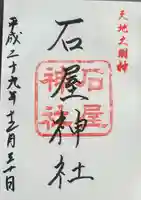 天地大明神
石屋神社
石屋神社
平成二十九年十二月三十日